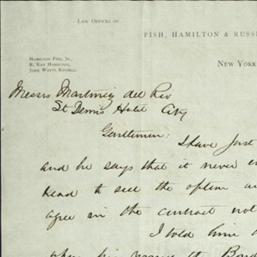 LAW OFFICES OF
FISH, HAMILTON & RUSS
HAMILTON FISH, Jr.,
R. RAY HAMILTON,
JOHN WATTS RUSSELL
NEW YORK
Messrs Martinez del Rio
St Denis Hotel City
Gentlemen:
I have just
and he says that it never en
head to see the option an
agree in the contract not
I told him
when his the Board